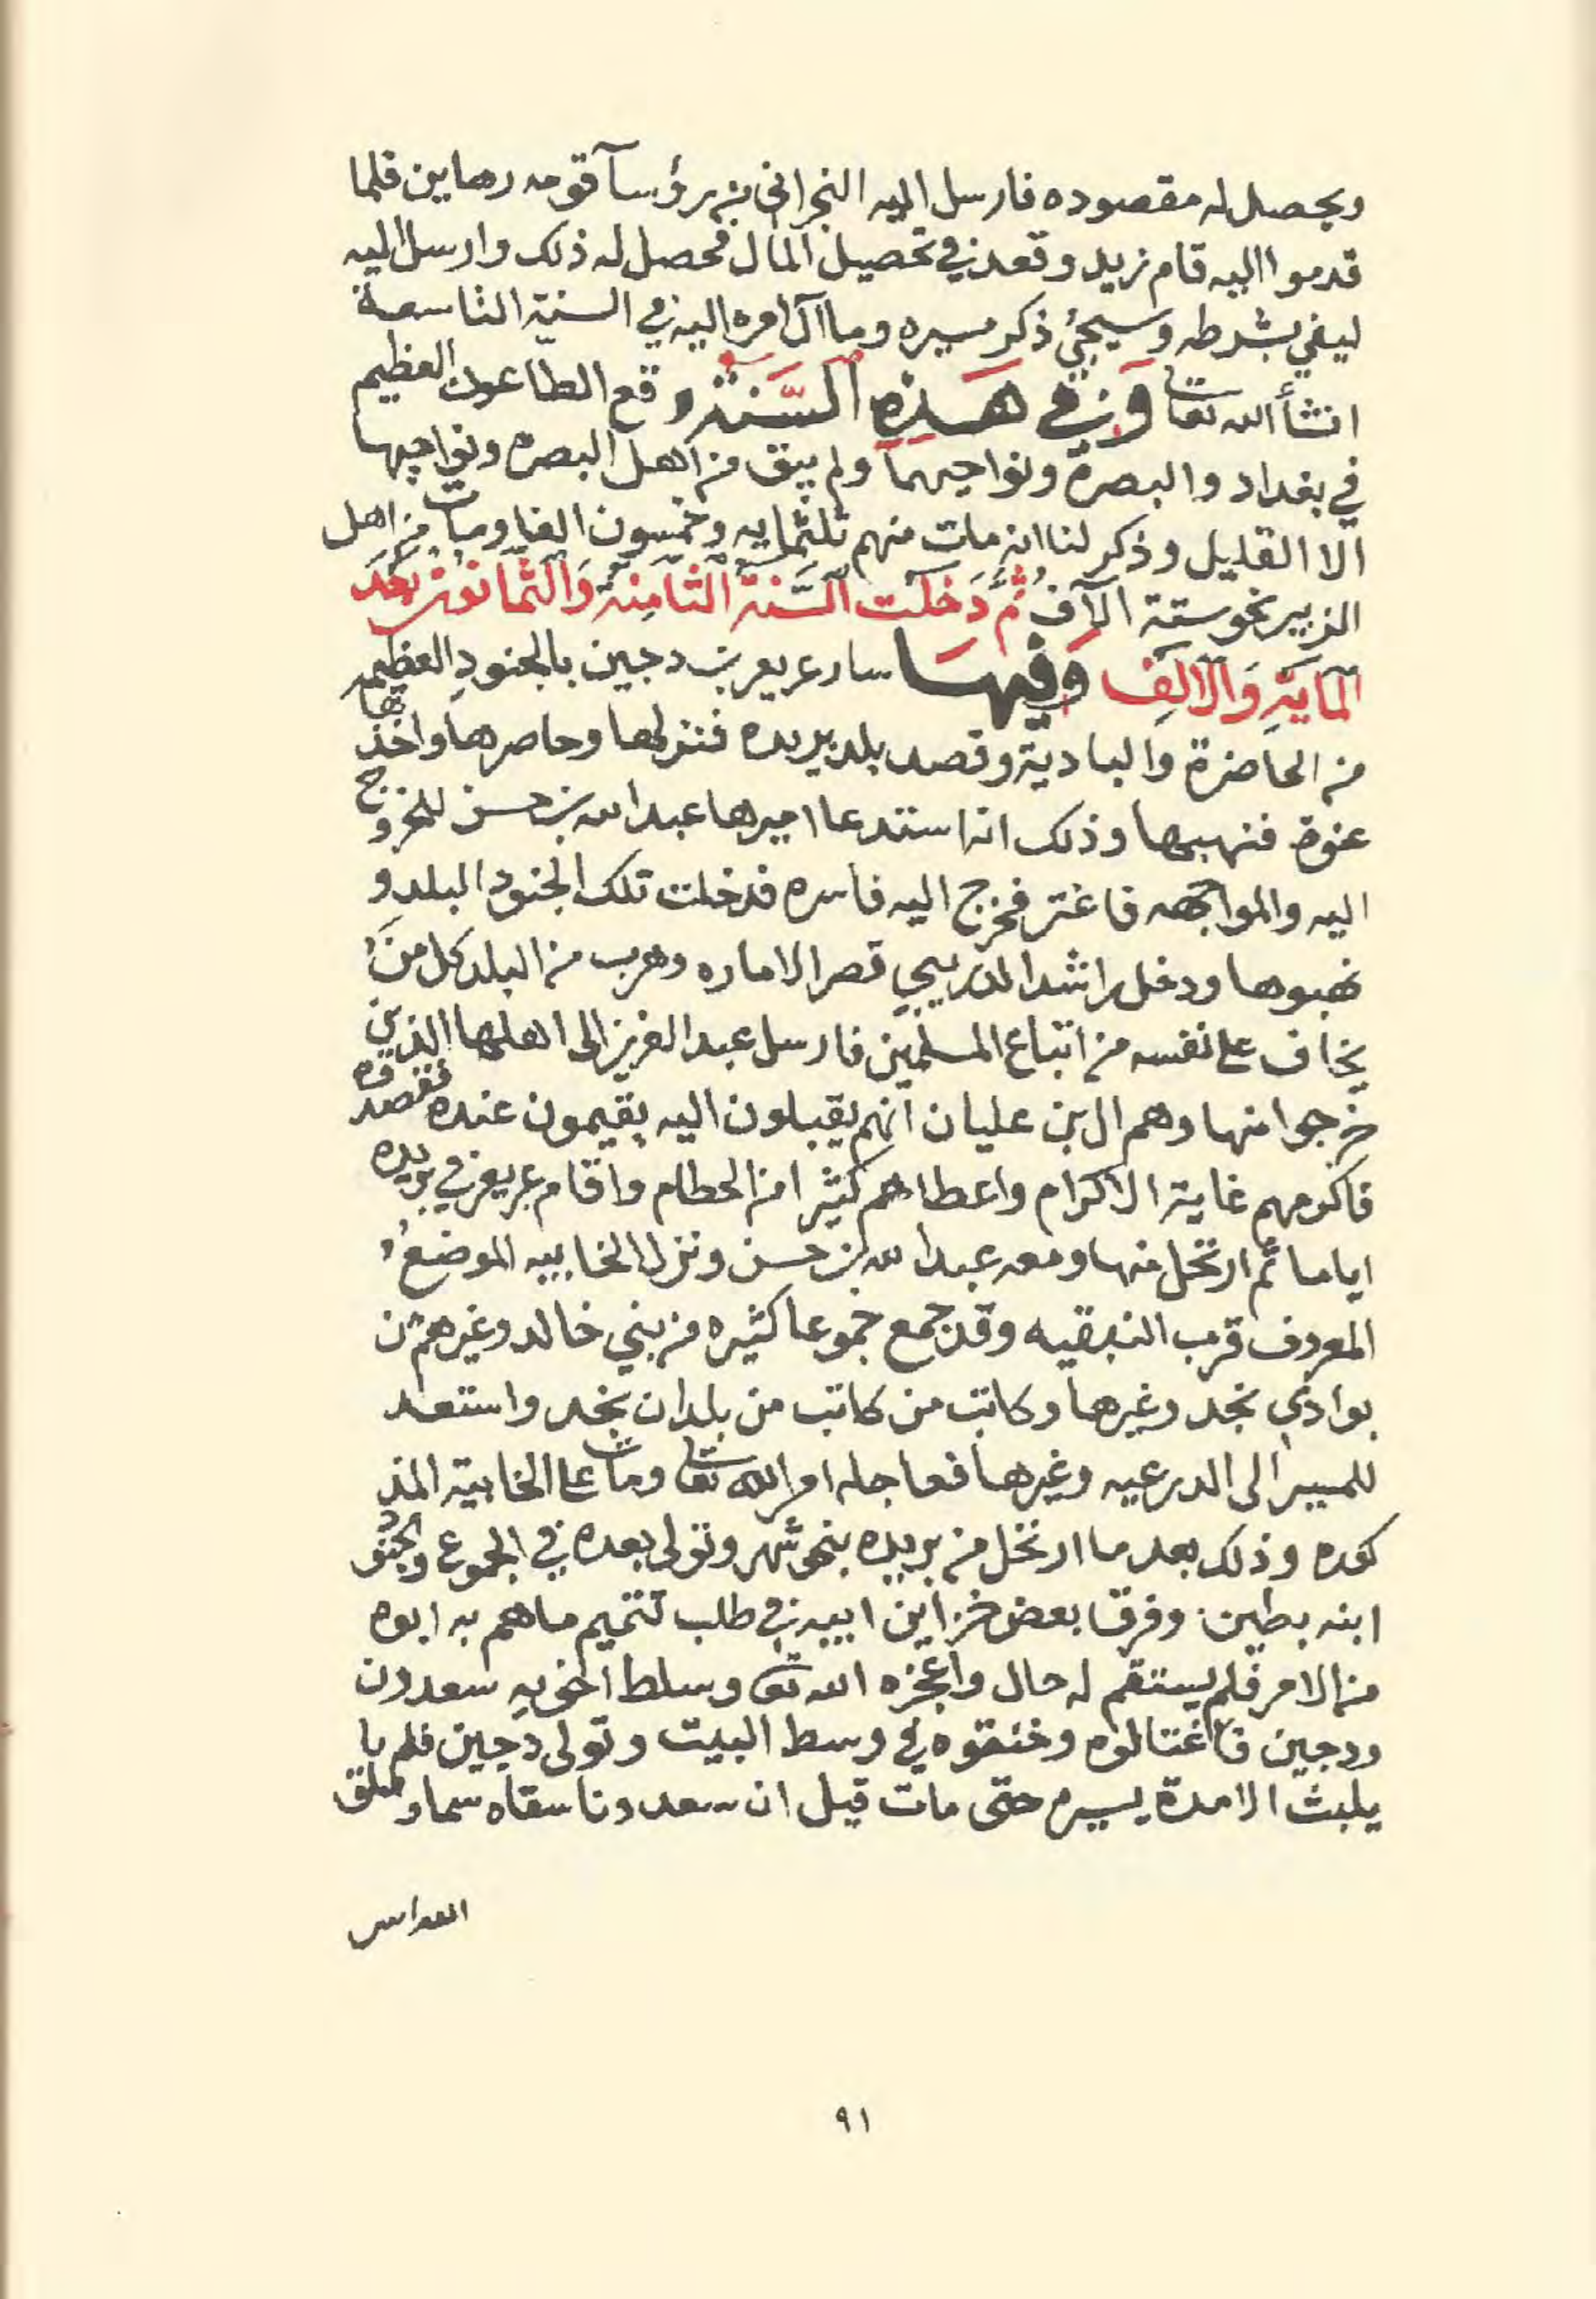 ويحصل له مقصوده فارسل اليه النجراني من رؤسآ قومه رهاين فلما
قدموا اليه قام زيد وقعد في تحصيل المال فحصل له ذلك وارسل اليه
ليفي بشرطه وسيجيُ ذكر مسيره وما آل امره اليه في السنة التاسعة
انشأ الله تعالى وَفي هَذِهِ السَّنَة وقع الطاعون العظيم
في بغداد والبصرة ونواحيهما ولم يبق من اهل البصره ونواحيها
الا القليل وذكر لنا انه مات منهم ثلثمايه وخمسون الفا ومات من اهل
الزبير نحو ستة الآف ثُمَّ دَخلَت السَّنة الثَامِنةُ وَالثمانون بَعْدَ
المايَةِ وَالالِف وَفيهَا سار عريعر بن دجين بالجنودِ العظيمه
من الحاضرة والبادية وقصد بلد بريده فنزلها وحاصرها واخذها
عنوة فنهبها وذلك انه استدعا اميرها عبدالله بن حسن للخروج
اليه والمواجهه فاغتر فخرج اليه فاسره فدخلت تلك الجنود البلد و
نهبوها ودخل راشد الدريبي قصر الاماره وهرب من البلد كل من
يخاف على نفسه من اتباع المسلمين فارسل عبدالعزيز الى اهلها الذين
خرجوا منها وهم ال بن عليان انهم يقبلون اليه يقيمون عنده فقصدوه
فاكرمهم غاية الاكرام واعطاهم كثيرا من الحطام واقام عريعر في بريده
اياما ثم ارتحل منها ومعه عبدالله بن حسن ونزل الخابيه الموضع
المعروف قرب النبقيه وقد جمع جموعا كثيره من بني خالد وغيرهم من
بوادي نجد وغيرها وكاتب من كاتب من بلدان نجد واستعد
للمسير الى الدرعيه وغيرها فعاجله امر الله تعالى ومات على الخابية المذ
كوره وذلك بعد ما ارتحل من بريده بنحو شهر وتولى بعده في الجموع والجنود
ابنه بطين وفرق بعض خزاين ابيه في طلب تتميم ما هم به ابوه
من الامر فلم يستقم له حال واعجزه الله تعالى وسلط اخويهِ سعدون
ودجين فاغتالوه وخنقوه في وسط البيت وتولى دجين فلم يا
يلبث الا مدة يسيره حتى مات قيل ان سعدونا سقاه سما و
٩١